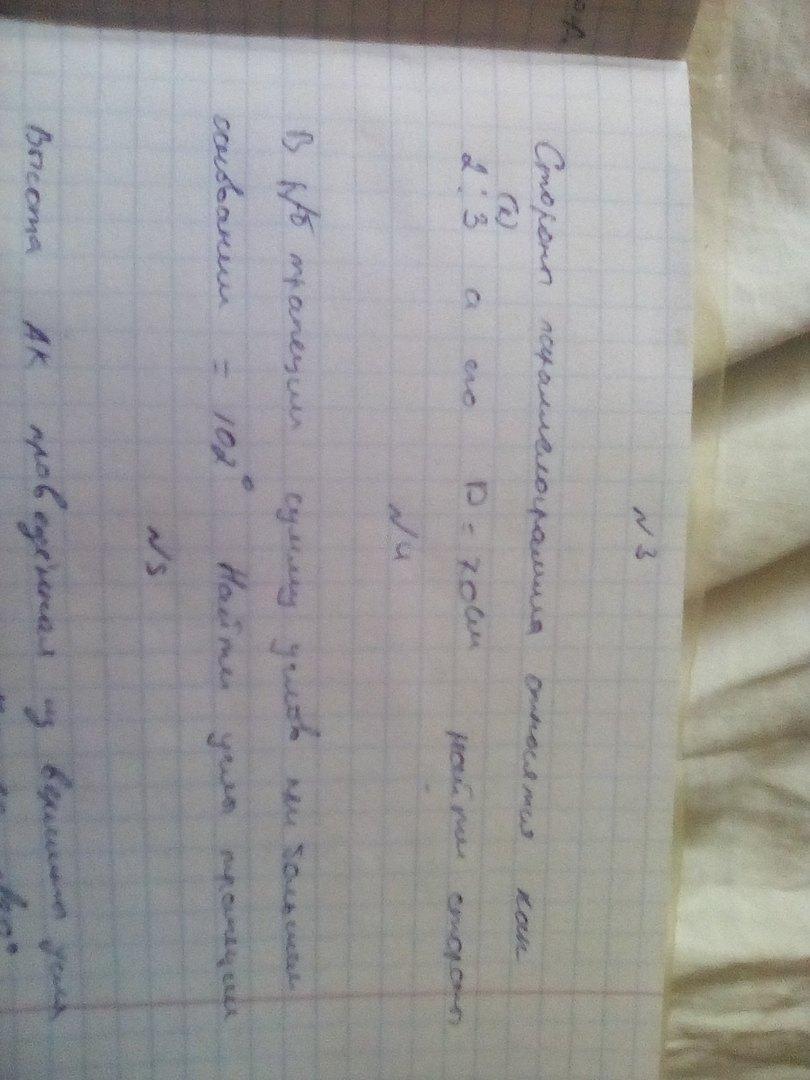 N 3
Стороны параллелограмма относятся как
(x)
2 : 3 а его P = 70см найти стороны
N 4
В р/б трапеции сумма углов при большем
основании = 102° Найти углы трапеции
N 5
Высота АК проведённая из вершины угла